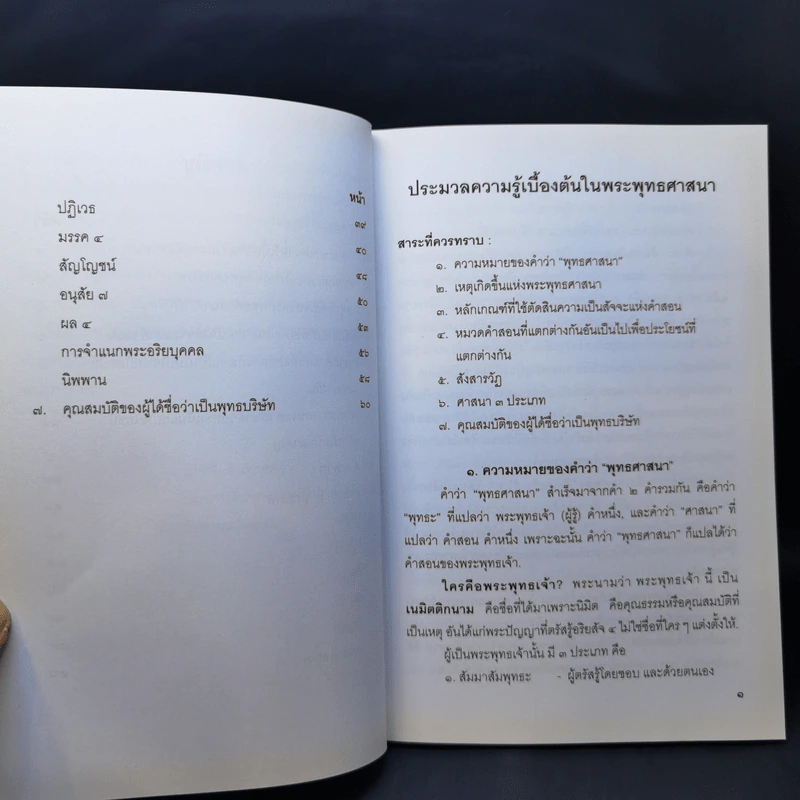 หน้า
ปฏิเวธ ๓๙
มรรค ๔ ๔๐
สัญโญชน์ ๔๘
อนุสัย ๗ ๕๐
ผล ๔ ๕๓
การจำแนกพระอริยบุคคล ๕๖
นิพพาน ๕๘
๗. คุณสมบัติของผู้ได้ชื่อว่าเป็นพุทธบริษัท ๖๐
ประมวลความรู้เบื้องต้นในพระพุทธศาสนา
สาระที่ควรทราบ :
๑. ความหมายของคำว่า “พุทธศาสนา”
๒. เหตุเกิดขึ้นแห่งพระพุทธศาสนา
๓. หลักเกณฑ์ที่ใช้ตัดสินความเป็นสัจจะแห่งคำสอน
๔. หมวดคำสอนที่แตกต่างกันอันเป็นไปเพื่อประโยชน์ที่
แตกต่างกัน
๕. สังสารวัฏ
๖. ศาสนา ๓ ประเภท
๗. คุณสมบัติของผู้ได้ชื่อว่าเป็นพุทธบริษัท
๑. ความหมายของคำว่า “พุทธศาสนา”
คำว่า “พุทธศาสนา” สำเร็จมาจากคำ ๒ คำรวมกัน คือคำว่า
“พุทธะ” ที่แปลว่า พระพุทธเจ้า (ผู้รู้) คำหนึ่ง, และคำว่า “ศาสนา” ที่
แปลว่า คำสอน คำหนึ่ง เพราะฉะนั้น คำว่า “พุทธศาสนา” ก็แปลได้ว่า
คำสอนของพระพุทธเจ้า.
ใครคือพระพุทธเจ้า? พระนามว่า พระพุทธเจ้า นี้ เป็น
เนมิตติกนาม คือชื่อที่ได้มาเพราะนิมิต คือคุณธรรมหรือคุณสมบัติที่
เป็นเหตุ อันได้แก่พระปัญญาที่ตรัสรู้อริยสัจ ๔ ไม่ใช่ชื่อที่ใคร ๆ แต่งตั้งให้.
ผู้เป็นพระพุทธเจ้านั้น มี ๓ ประเภท คือ
๑. สัมมาสัมพุทธะ - ผู้ตรัสรู้โดยชอบ และด้วยตนเอง
๑